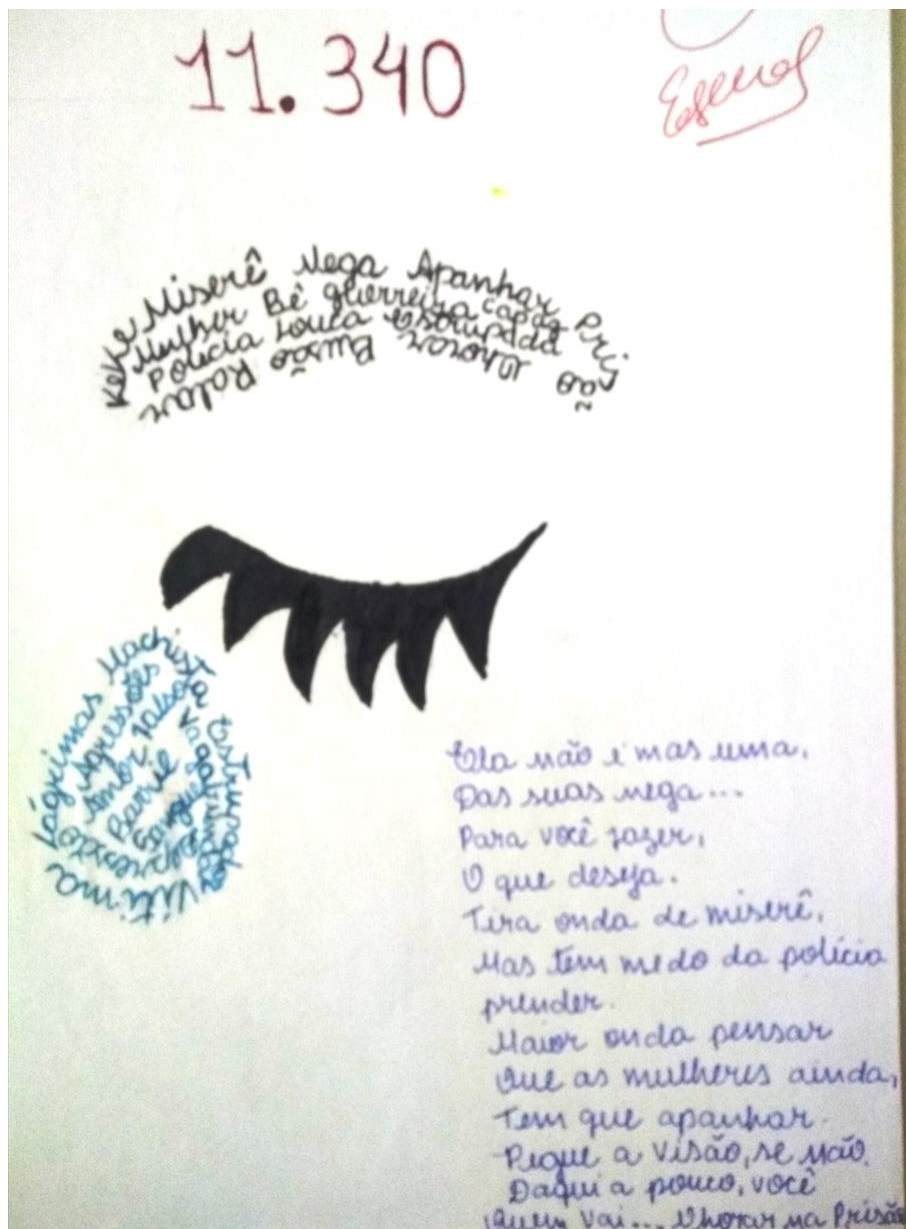 11.340
Miserê Nega Apanhar Pri
Mulher Bê guerreira capaz
Polícia Louca estrupada
são Chorar Busão Ralar
Lágrimas Machista Estrupador Vítima
Agressões
Amor falso
Barrie
Sangue
Ela não é mas uma,
Das suas nega...
Para você fazer,
O que deseja.
Tira onda de miserê,
Mas tem medo da polícia
prender.
Maior onda pensar
Que as mulheres ainda,
Tem que apanhar.
Pegue a visão, se não.
Daqui a pouco, você
Quem vai... Chorar na Prisão